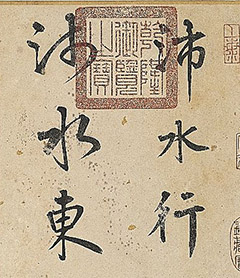 沛水行
沛水東
乾隆
御覽
之寶